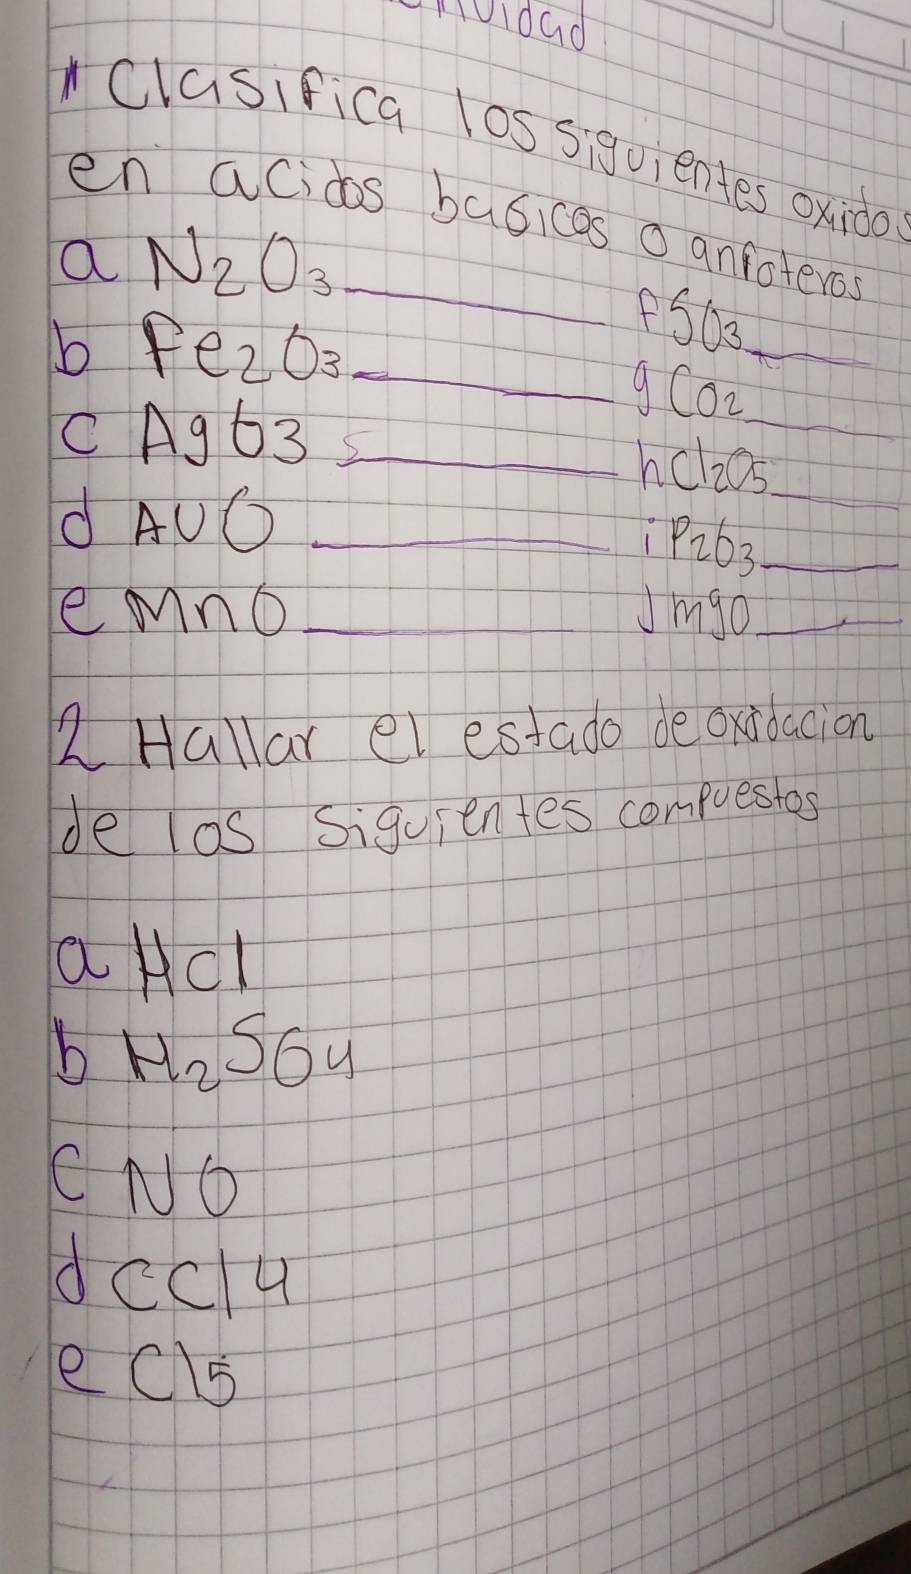 1 Clasifica los siguientes oxidos
en acidos basicos o anfoteros
a N2O3
b Fe2O3
c AgO3
d AUO
e MnO
f SO3
g CO2
h Cl2O5
i P2O3
J mgo
2 Hallar el estado de oxidacion
de los siguientes compuestos
a HCl
b H2SO4
c NO
d CCl4
e Cl5